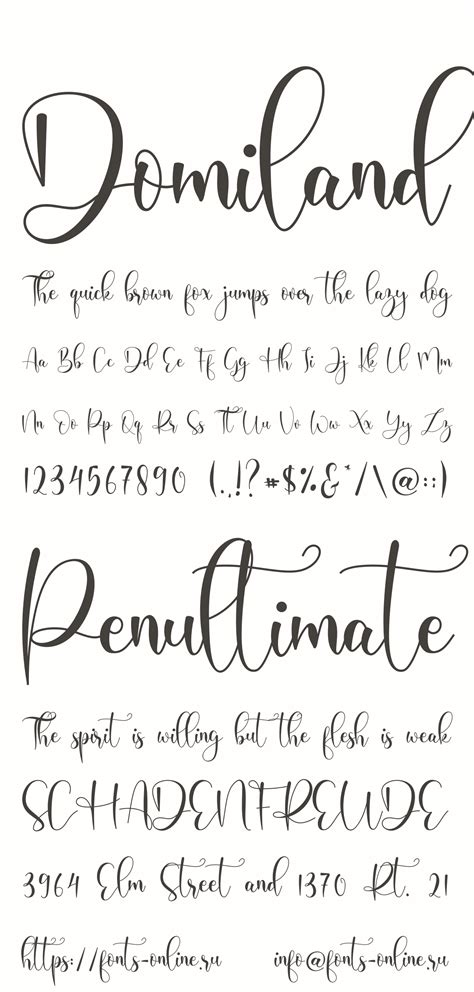 Domiland
The quick brown fox jumps over the lazy dog
Aa Bb Cc Dd Ee Ff Gg Hh Ii Jj Kk Ll Mm
Nn Oo Pp Qq Rr Ss Tt Uu Vv Ww Xx Yy Zz
1234567890 (.,!?#$%&*/\@:;)
Penultimate
The spirit is willing but the flesh is weak
SCHADENFREUDE
3964 Elm Street and 1370 Rt. 21
https://fonts-online.ru info@fonts-online.ru